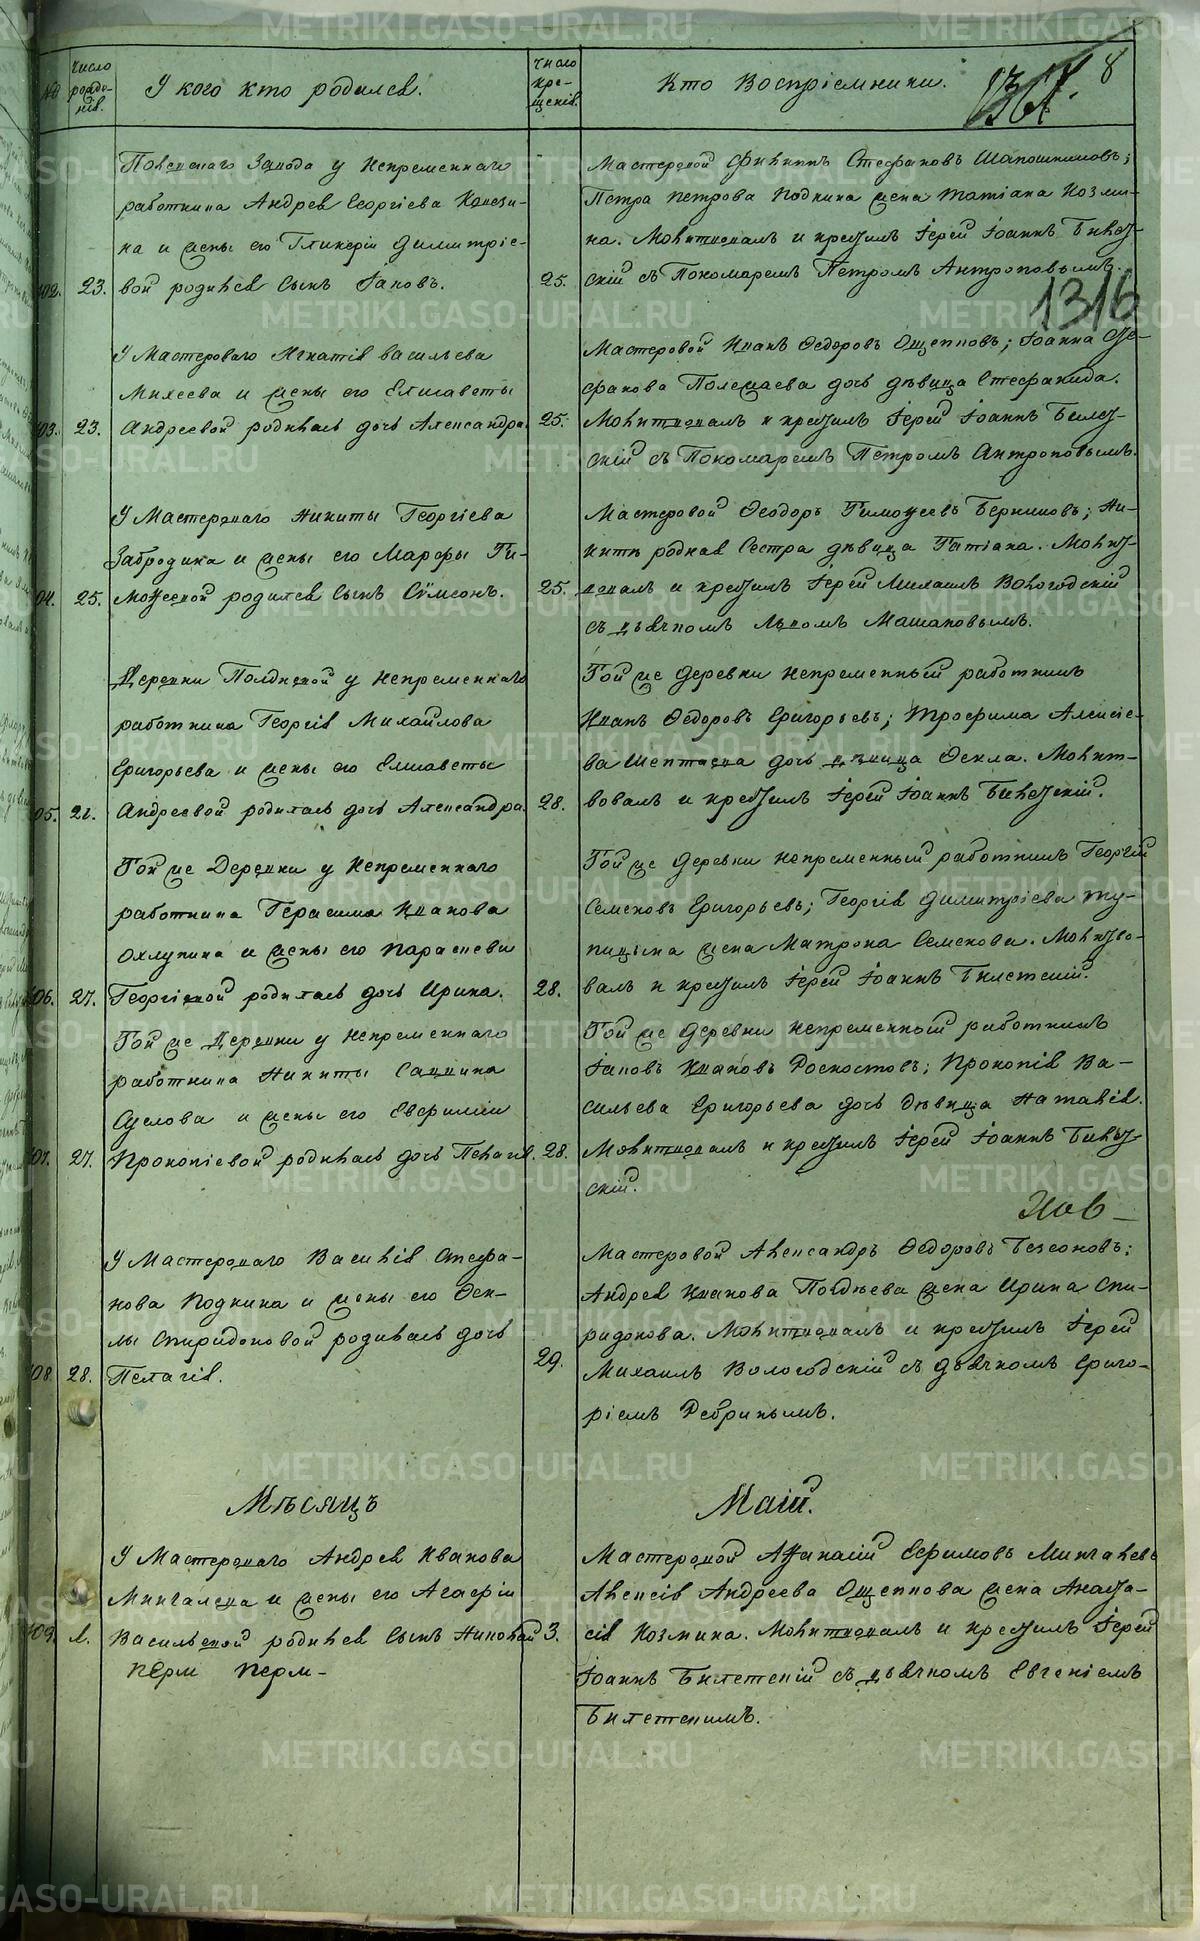 №
Число рожде-нія.
У кого кто родился.
Число кре-щенія.
Кто Воспріемники.
8
1316
Полевскаго Завода у непременнаго
работника Андрея Георгіева
на и жены его Гликеріи Димитріе-
102. 23. вой родился сынъ Іаковъ. 25.
Мастеровой Филиппъ Стефановъ Шапошниковъ;
Петра Петрова Подкина жена Татіана Козми-
на. Молитвовалъ и крестилъ Іерей Іоаннъ Билет-
скій съ Пономаремъ Петромъ Антроповымъ.
У Мастероваго Игнатія Васильева
Михеева и жены его Елисаветы
103. 23. Андреевой родилась дочь Александра. 25.
Мастеровой Иванъ Ѳедоровъ Ощепковъ; Іоанна Сте-
фанова Полежаева дочь дѣвица Стефанида.
Молитвовалъ и крестилъ Іерей Іоаннъ Билет-
скій съ Пономаремъ Петромъ Антроповымъ.
У Мастероваго Никиты Георгіева
Забродина и жены его Марѳы Ти-
104. 25. моѳеевой родился сынъ Сѵмеонъ. 25.
Мастеровой Ѳеодоръ Тимоѳеевъ Берниковъ; Ни-
киты родная сестра дѣвица Татіана. Молит-
вовалъ и крестилъ Іерей Михаилъ Вологодскій
съ дьячкомъ Львомъ Машановымъ.
Деревни Полдневой у непременнаго
работника Георгія Михайлова
Григорьева и жены его Елисаветы
105. 21. Андреевой родилась дочь Александра. 28.
Той же деревни непременный работникъ
Иванъ Ѳедоровъ Григорьевъ; Трофима Алексіе-
ва Шептаева дочь дѣвица Ѳекла. Молит-
вовалъ и крестилъ Іерей Іоаннъ Билетскій.
Той же Деревни у непременнаго
работника Герасима Иванова
Охлупина и жены его Параскевы
106. 27. Георгіевой родилась дочь Ирина. 28.
Той же деревни непременный работникъ Георгій
Семеновъ Григорьевъ; Георгія Димитріева Ту-
пицына жена Матрона Семенова. Молитво-
валъ и крестилъ Іерей Іоаннъ Билетскій.
Той же Деревни у непременнаго
работника Никиты Саввина
Суслова и жены его Евфиміи
107. 27. Прокопіевой родилась дочь Пелагія. 28.
Той же деревни непременный работникъ
Іаковъ Ивановъ Роскостовъ; Прокопія Ва-
сильева Григорьева дочь дѣвица Наталія.
Молитвовалъ и крестилъ Іерей Іоаннъ Билет-
скій.
У Мастероваго Василія Стефа-
нова Подкина и жены его Ѳек-
лы Спиридоновой родилась дочь
108. 28. Пелагія. 29.
Мастеровой Александръ Ѳедоровъ Безсоновъ;
Андрея Иванова Полднева жена Ирина Спи-
ридонова. Молитвовалъ и крестилъ Іерей
Михаилъ Вологодскій съ дьячкомъ Григо-
ріемъ Ребринымъ.
Мѣсяцъ Маій.
У Мастероваго Андрея Иванова
Мингалева и жены его Агафіи
109. 1. Васильевой родился сынъ Николай 3.
Перм Перм-
Мастеровой Аѳанасій Ефимовъ Мингалевъ
Алексія Андреева Ощепкова жена Анаста-
сія Козмина. Молитвовалъ и крестилъ Іерей
Іоаннъ Билетскій съ дьячкомъ Евгеніемъ
Билетскимъ.
METRIKI.GASO-URAL.RU